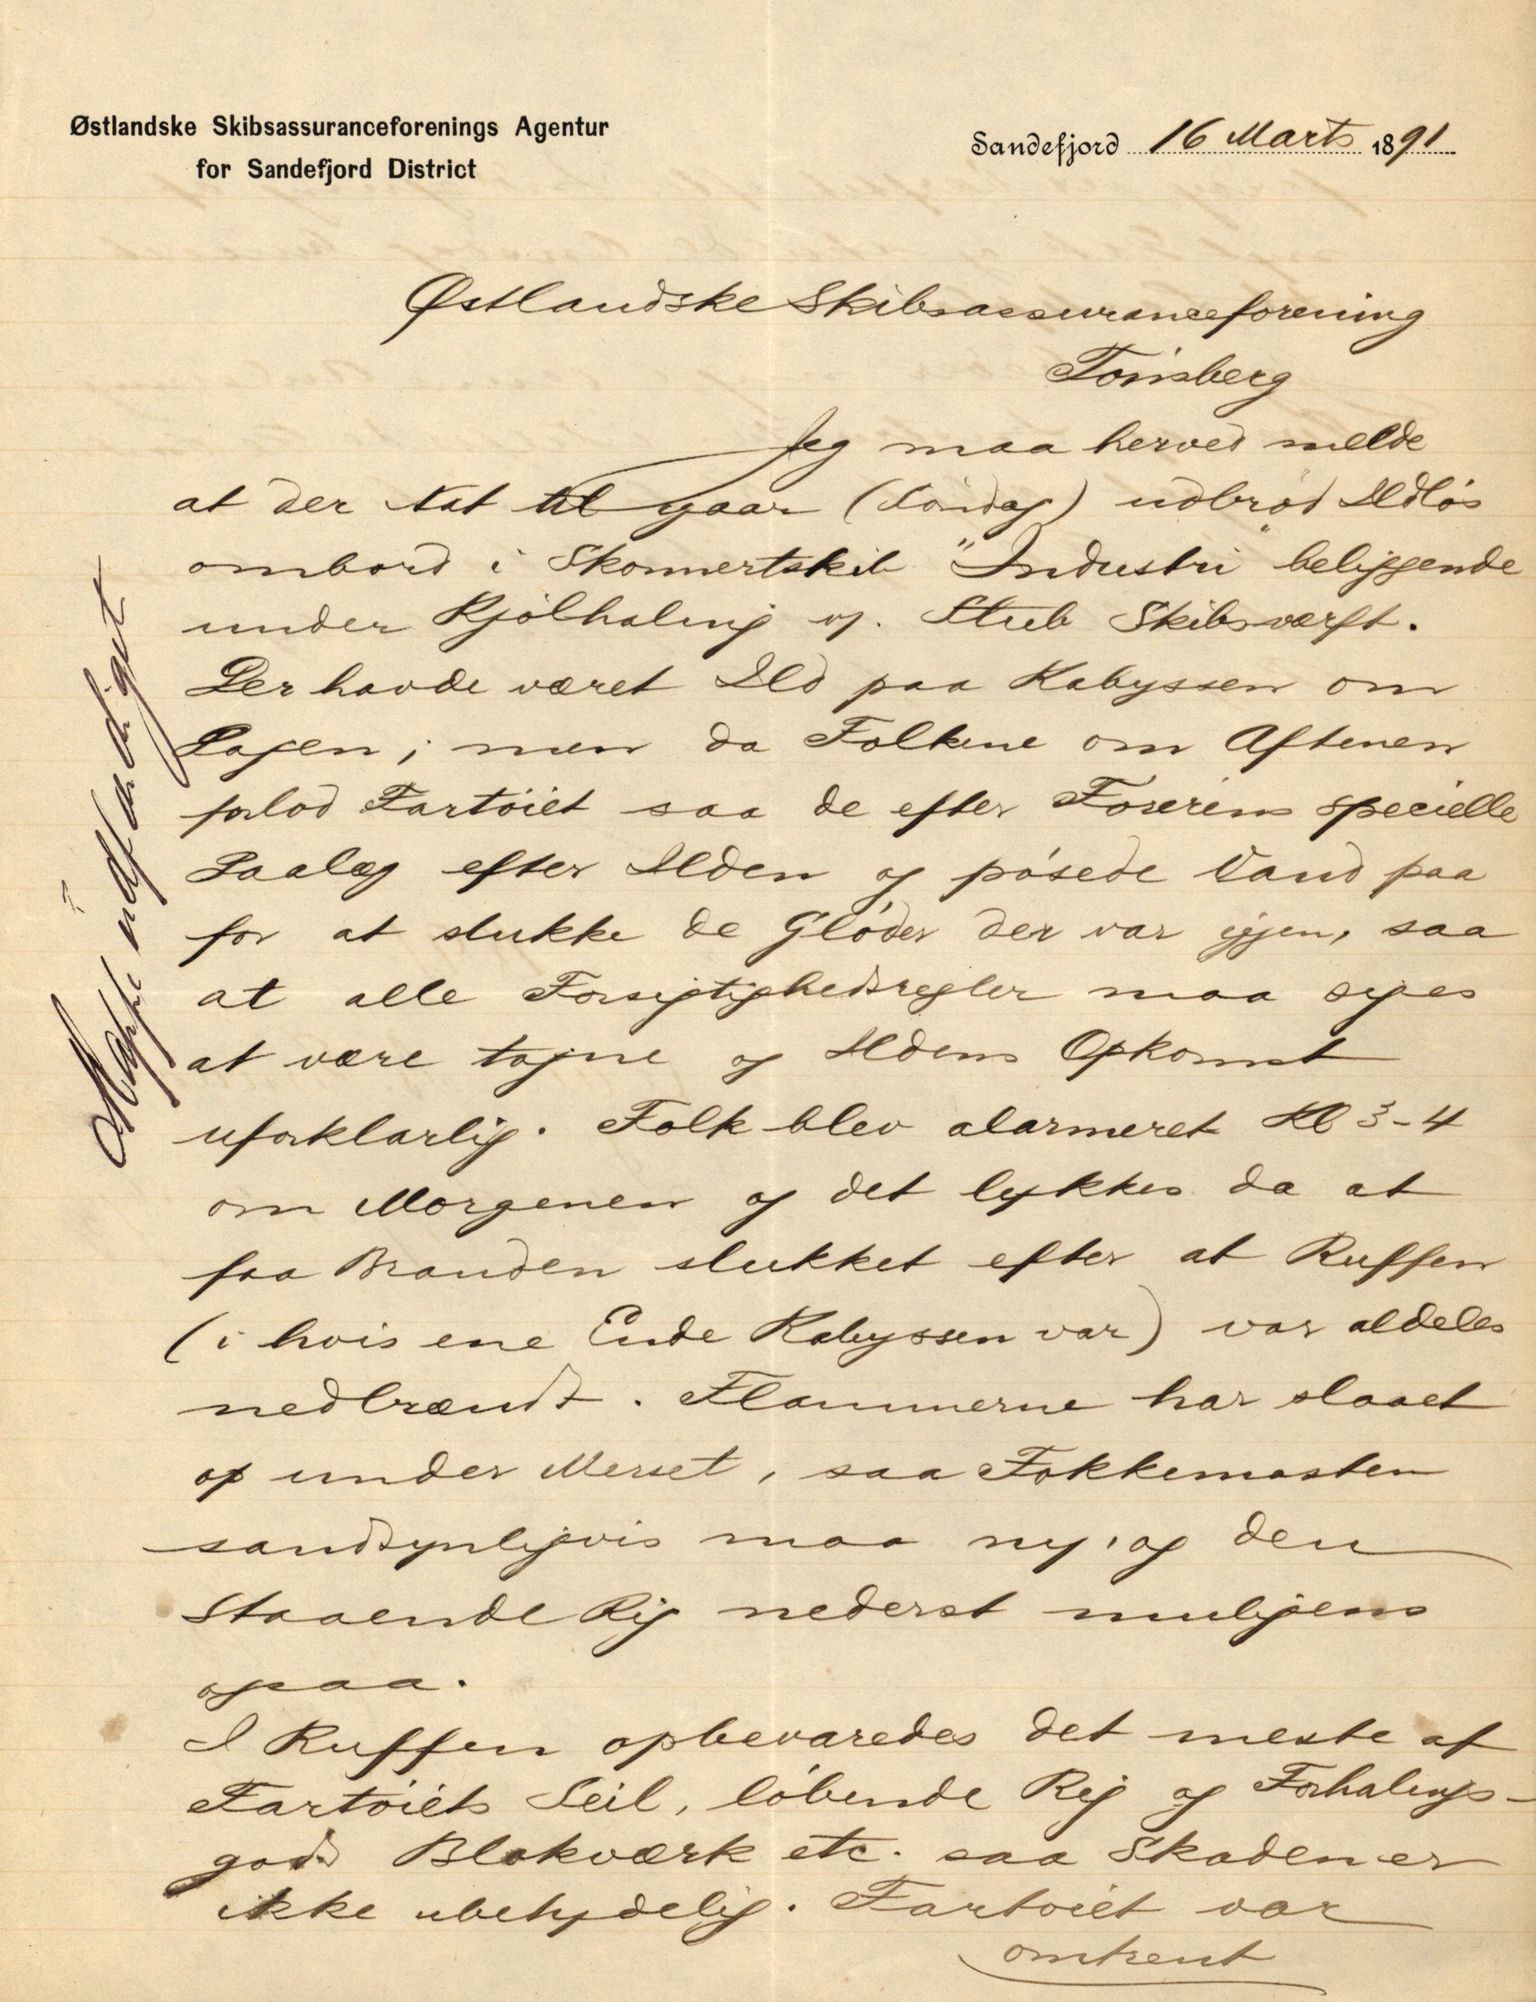 Østlandske Skibsassuranceforenings Agentur
for Sandefjord District
Sandefjord 16 Marts 1891
Østlandske Skibsassuranceforening
Tönsberg
Jeg maa herved melde
at der Nat til igaar (Söndag) udbröd Ildlös
ombord i Skonnertskib "Industri" beliggende
under Kjölhaling v. Stub Skibsværft.
Der havde været Ild paa Kabyssen om
Dagen; men da Folkene om Aftenen
forlod Fartöiet saa de efter Förerens specielle
Paalæg efter Ilden og pösede Vand paa
for at slukke de Glöder der var igjen, saa
at alle Forsigtighedsregler maa siges
at være tagne og Ildens Opkomst
uforklarlig. Folk blev alarmeret Kl 3-4
om Morgenen og det lykkes da at
faa Branden slukket efter at Ruffen
(i hvis ene Ende Kabyssen var) var aldeles
nedbrændt. Flammerne har slaaet
op under Merset, saa Fokkemasten
sandsynligvis maa ny, og den
staaende Rig nederst muligens
ogsaa.
I Ruffen opbevaredes det meste af
Fartöiets Seil, löbende Rig og Forhalings-
gods Blokværk etc. saa Skaden er
ikke ubetydelig. Fartöiet var
omtrent
Mappe udfærdiget